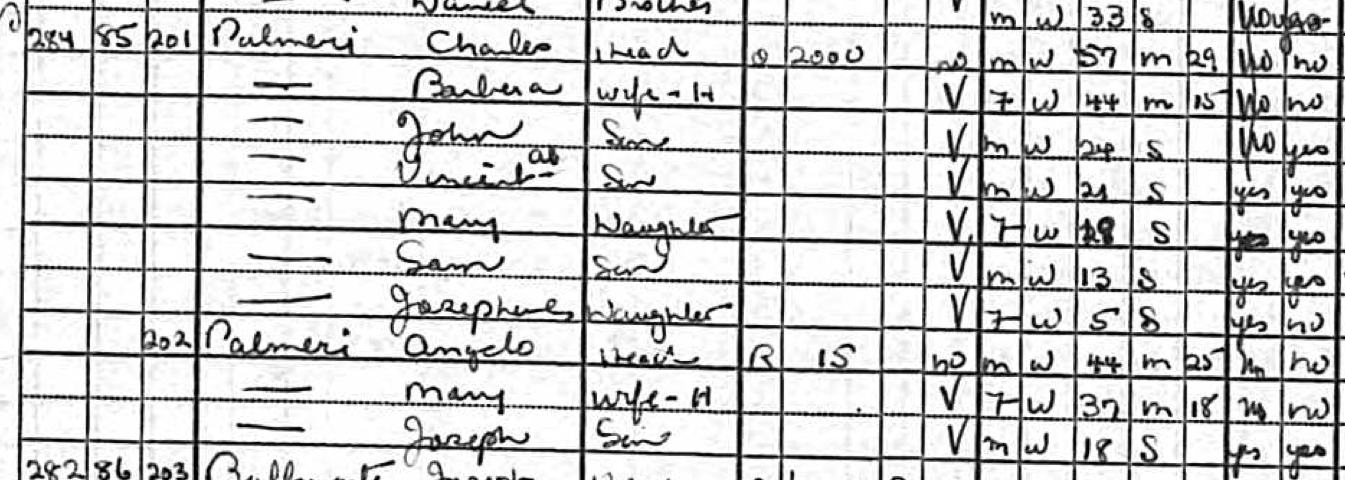 Daniel Brother V m w 33 S No
284 85 201 Palmeri Charles Head O 2000 no m w 57 m 29 No no
— Barbera wife-H V F w 44 m 15 No no
— John Son V m w 24 S No yes
— Vincent ab Son V m w 21 S yes yes
— Mary Daughter V F w S yes yes
— Sam Son V m w 13 S yes yes
— Josephene Daughter V F w 5 S yes no
202 Palmeri Angelo Head R 15 no m w 44 m 25 no
— Mary wife-H V F w 37 m 18 no
— Joseph Son V m w 18 S yes yes
282 86 203